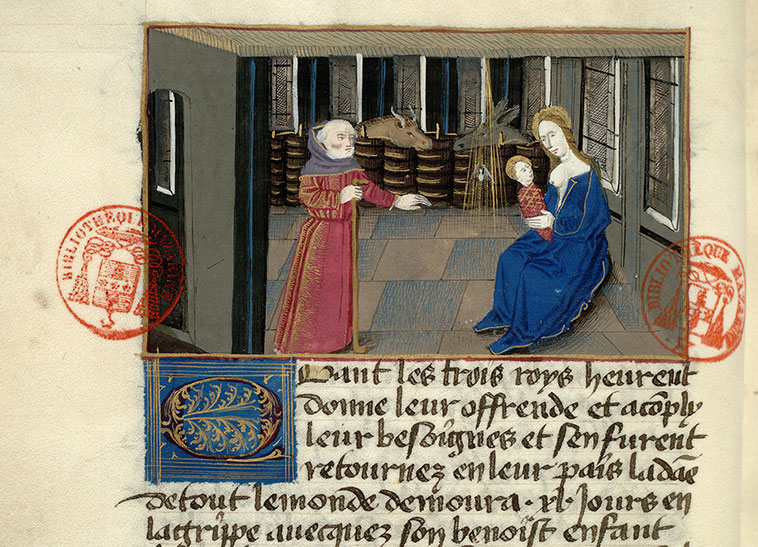 BIBLIOTHEQU
BIBLIOTHEQUE MAZ
Quant les trois roys heurent
donne leur offrende et acõply
leur besoignes et sen furent
retournez en leur pais la dãe
de tout le monde demoura . xl. Jours en
la grippe auecquez son benoist enfant